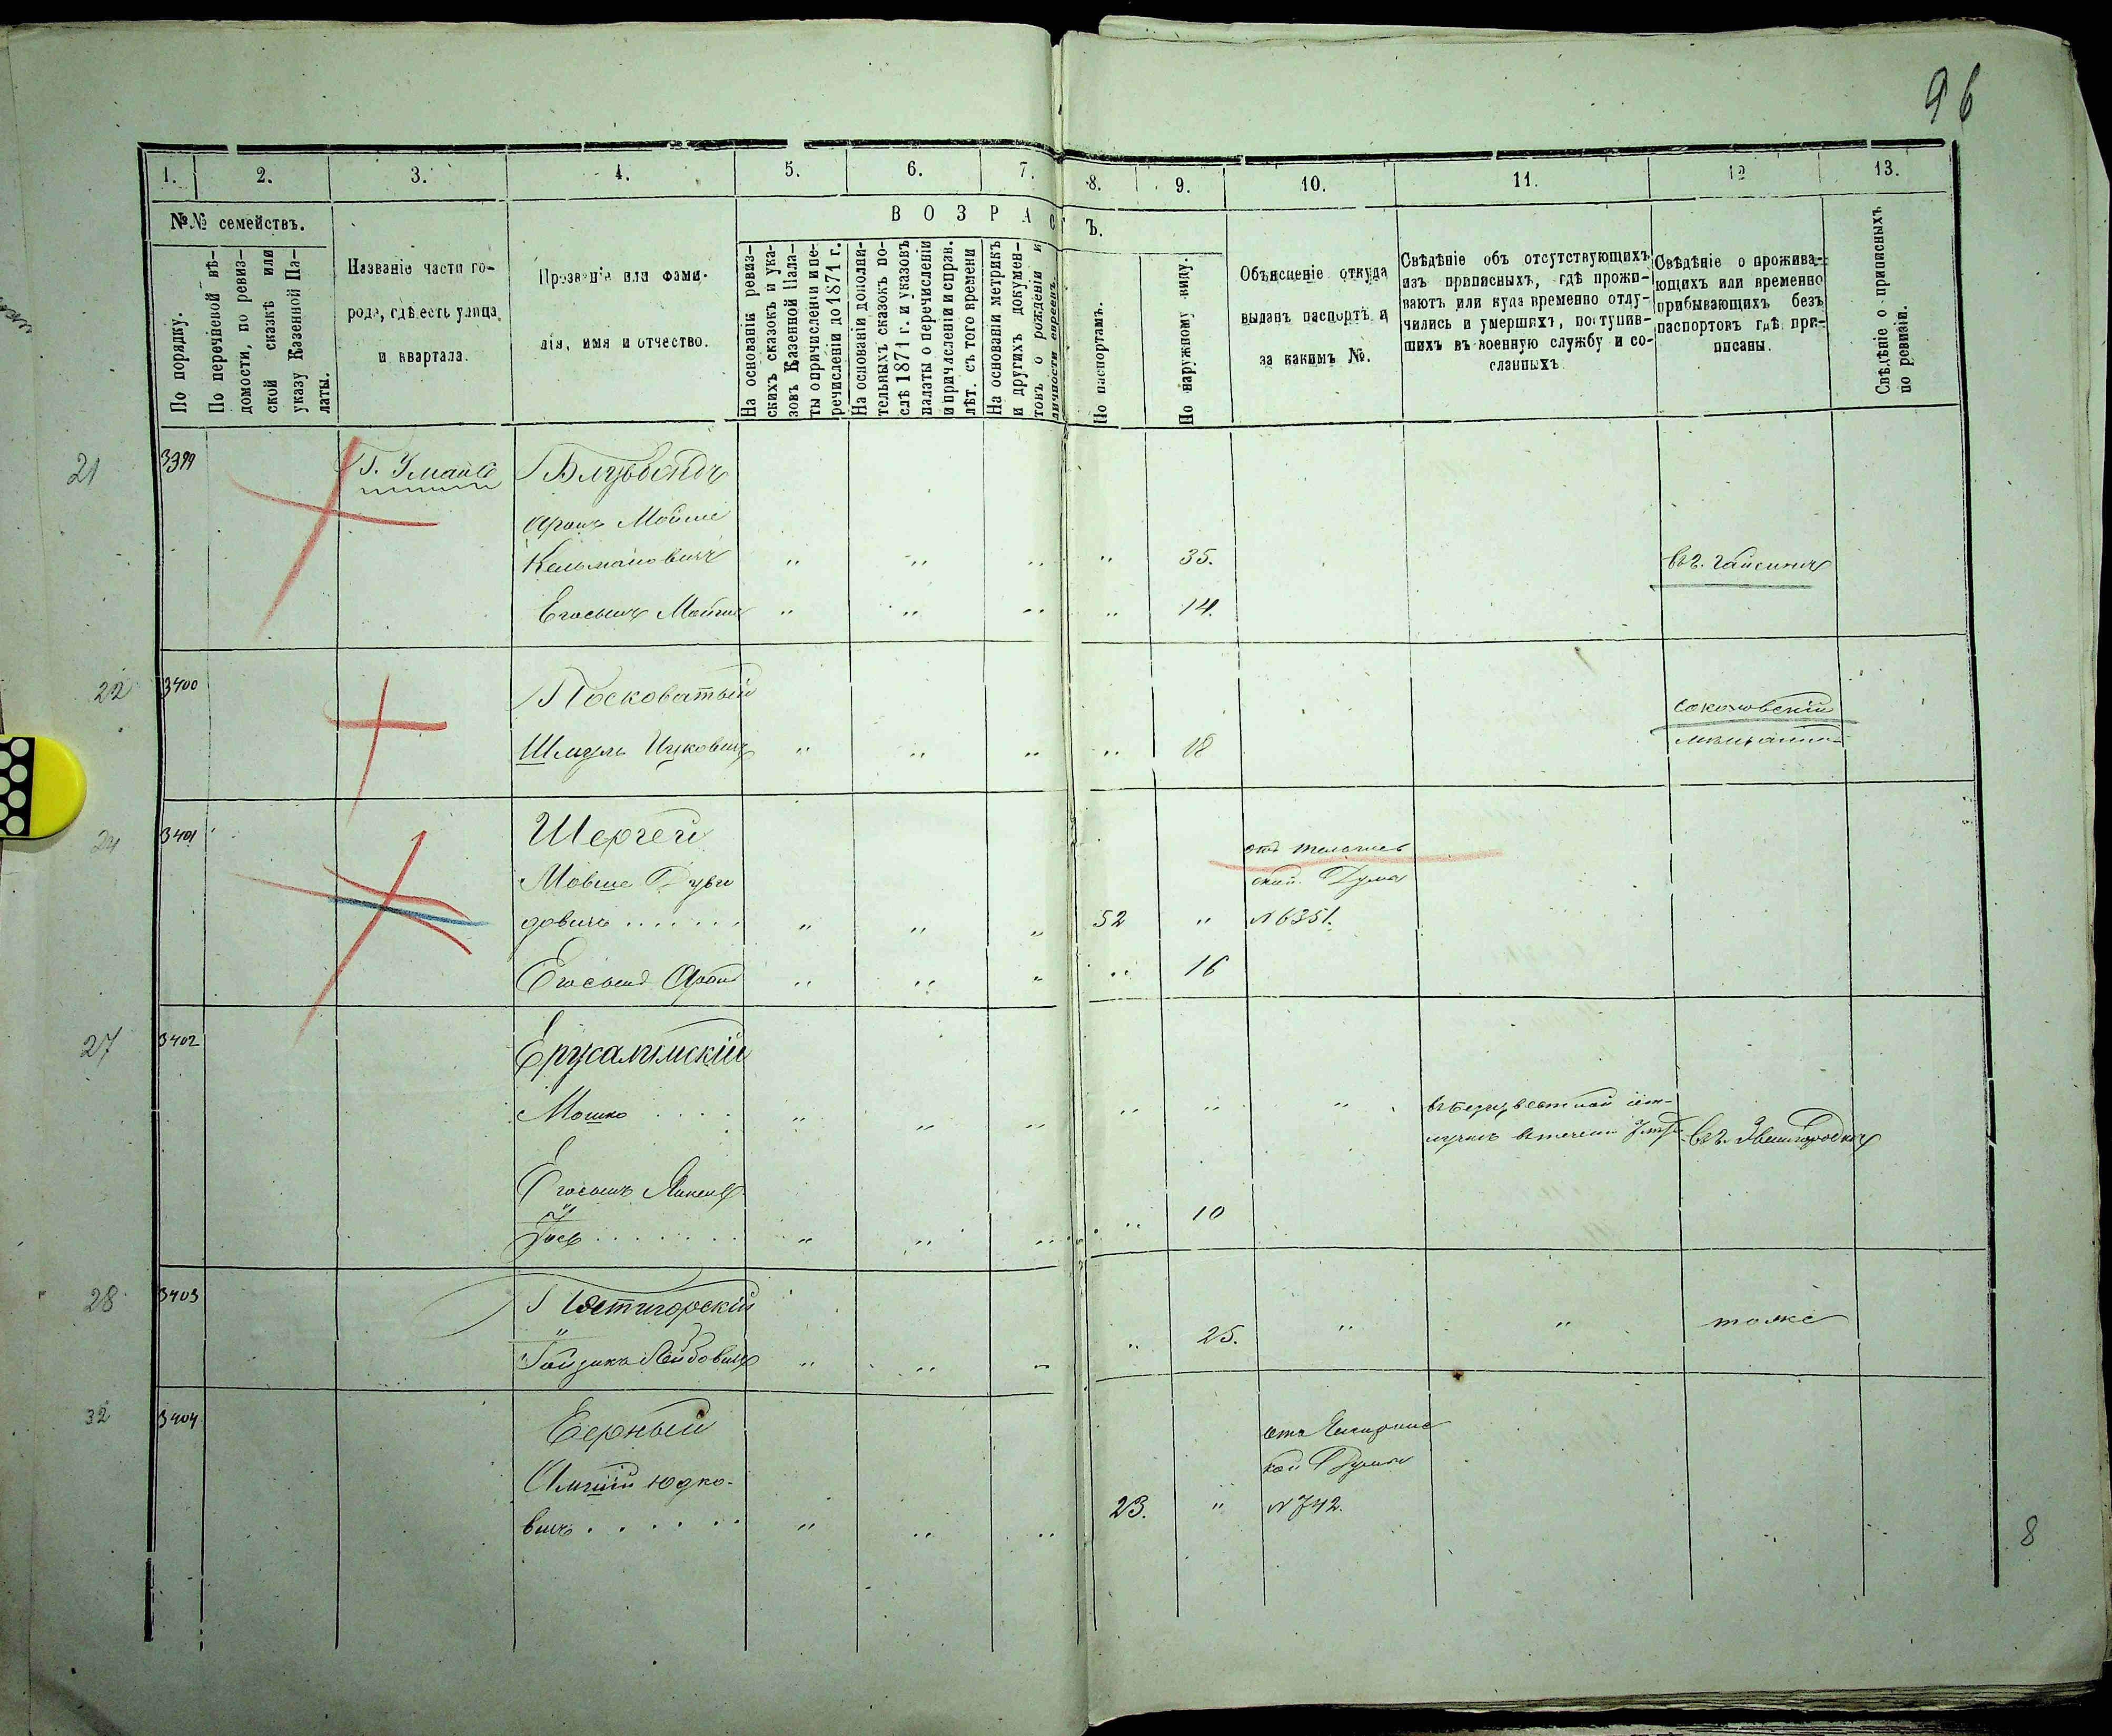 96
1. 2. 3. 4. 5. 6. 7. 8. 9. 10. 11. 12 13.
№№ семействъ.
По порядку.
По перечневой вѣ-
домости, по ревиз-
ской сказкѣ или
указу Казенной Па-
латы.
Названіе части го-
рода, гдѣ есть улица
и квартала.
Прозваніе или фами-
лія, имя и отчество.
ВОЗРАСТЪ.
На основаніи ревиз-
скихъ сказокъ и ука-
зовъ Казенной Пала-
ты о причисленіи и пе-
речисленіи до 1871 г.
На основаніи дополни-
тельныхъ сказокъ по-
слѣ 1871 г. и указовъ
палаты о перечисленіи
и причисленіи и справ.
лѣт. съ того времени
На основаніи метрикъ
и другихъ докумен-
товъ о рожденіи и
личности евреевъ.
По паспортамъ.
По наружному виду.
Объясненіе откуда
выданъ паспортъ и
за какимъ №.
Свѣдѣніе объ отсутствующихъ
изъ приписныхъ, гдѣ прожи-
ваютъ или куда временно отлу-
чились и умершихъ, поступив-
шихъ въ военную службу и со-
сланныхъ
Свѣдѣніе о прожива-
ющихъ или временно
прибывающихъ безъ
паспортовъ гдѣ при-
писаны.
Свѣдѣніе о приписныхъ
по ревизіи.
21 3399 Г. Умань
Аронъ Мойше
Кельмановичъ " " " " 35. въ г. Гайсинѣ
Его сынъ Мойше " " " " 14.
22 3400 Посковатый
Шмуль Ицковичъ " " " " 18
24 3401 Шергей
Мовше Дуви
довичъ " " " 52 " N 6351.
Думы
Его сынъ Аронъ " " " " 16
27 3402 Ерусалимскій
Мошко " " " " " "
въ г. Звенигородкѣ
Его сынъ
Іось " " " " 10
28 3403 Пятигорскій
Лейбовичъ " " " " 25. " " тоже
32 3404
Юдко-
вичъ " " " 23. " N 742.
Думы
8